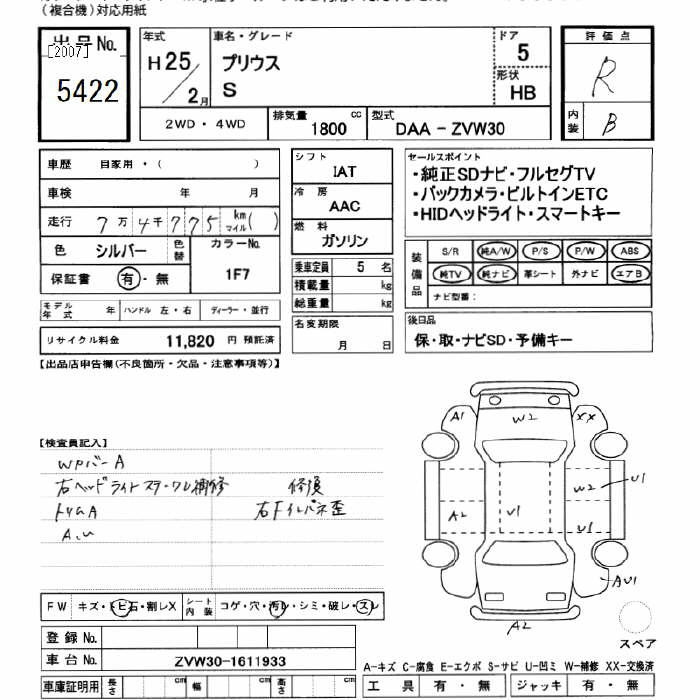 (複合機)対応用紙
出品No.
[2007]
5422
年式
H25/2月
車名・グレード
プリウス
S
ドア
5
形状
HB
2WD・4WD
排気量
1800 cc
型式
DAA-ZVW30
評価点
R
内装
B
車歴 自家用・( )
車検 年 月
走行 7万4千775 km マイル( )
色 シルバー 色替
カラーNo.
1F7
保証書 有・無
モデル年式 年 ハンドル 左・右 ディーラー・並行
リサイクル料金 11,820 円 預託済
シフト
IAT
冷房
AAC
燃料
ガソリン
乗車定員 5 名
積載量 kg
総重量 kg
名変期限
月 日
セールスポイント
・純正SDナビ・フルセグTV
・バックカメラ・ビルトインETC
・HIDヘッドライト・スマートキー
装備品
S/R 純A/W P/S P/W ABS
純TV 純ナビ 革シート 外ナビ エアB
ナビ型番:
後日品
保・取・ナビSD・予備キー
【出品店申告欄(不良箇所・欠品・注意事項等)】
【検査員記入】
WPバーA
右ヘッドライトステークル補修 修復
トリムA 右Fインパネ歪
A.U
A1
W2
XX
U1
W2
A2
U1
U1
AU1
A2
スペア
FW キズ・トビ石・割レX
シート内装 コゲ・穴・汚レ・シミ・破レ・スレ
登録No.
車台No. ZVW30-1611933
車庫証明用 長さ cm 幅 cm 高さ cm
A-キズ C-腐食 E-エクボ S-サビ U-凹ミ W-補修 XX-交換済
工具 有・無 ジャッキ 有・無